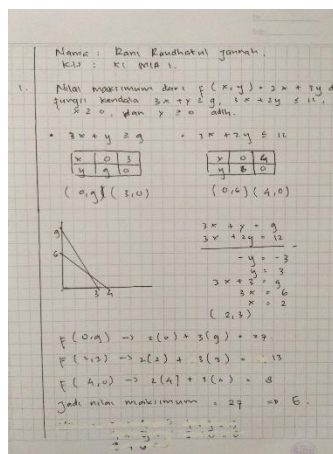 Nama : Rani Raudhatul Jannah.
Kls : XI MIA 1.
1. Nilai maksimum dari f(x,y) = 2x + 3y d
fungsi kendala 3x + y ≥ 9, 3x + 2y ≤ 12,
x ≥ 0, dan y ≥ 0 adlh.
• 3x + y ≥ 9 • 3x + 2y ≤ 12
x 0 3 x 0 4
y 9 0 y 6 0
(0,9) (3,0) (0,6) (4,0)
9
6
3 4
3x + y = 9
3x + 2y = 12
-y = -3
y = 3
3x + 3 = 9
3x = 6
x = 2
(2,3)
F(0,9) -> 2(0) + 3(9) = 27
F(2,3) -> 2(2) + 3(3) = 13
F(4,0) -> 2(4) + 3(0) = 8
Jadi nilai maksimum = 27 => E.